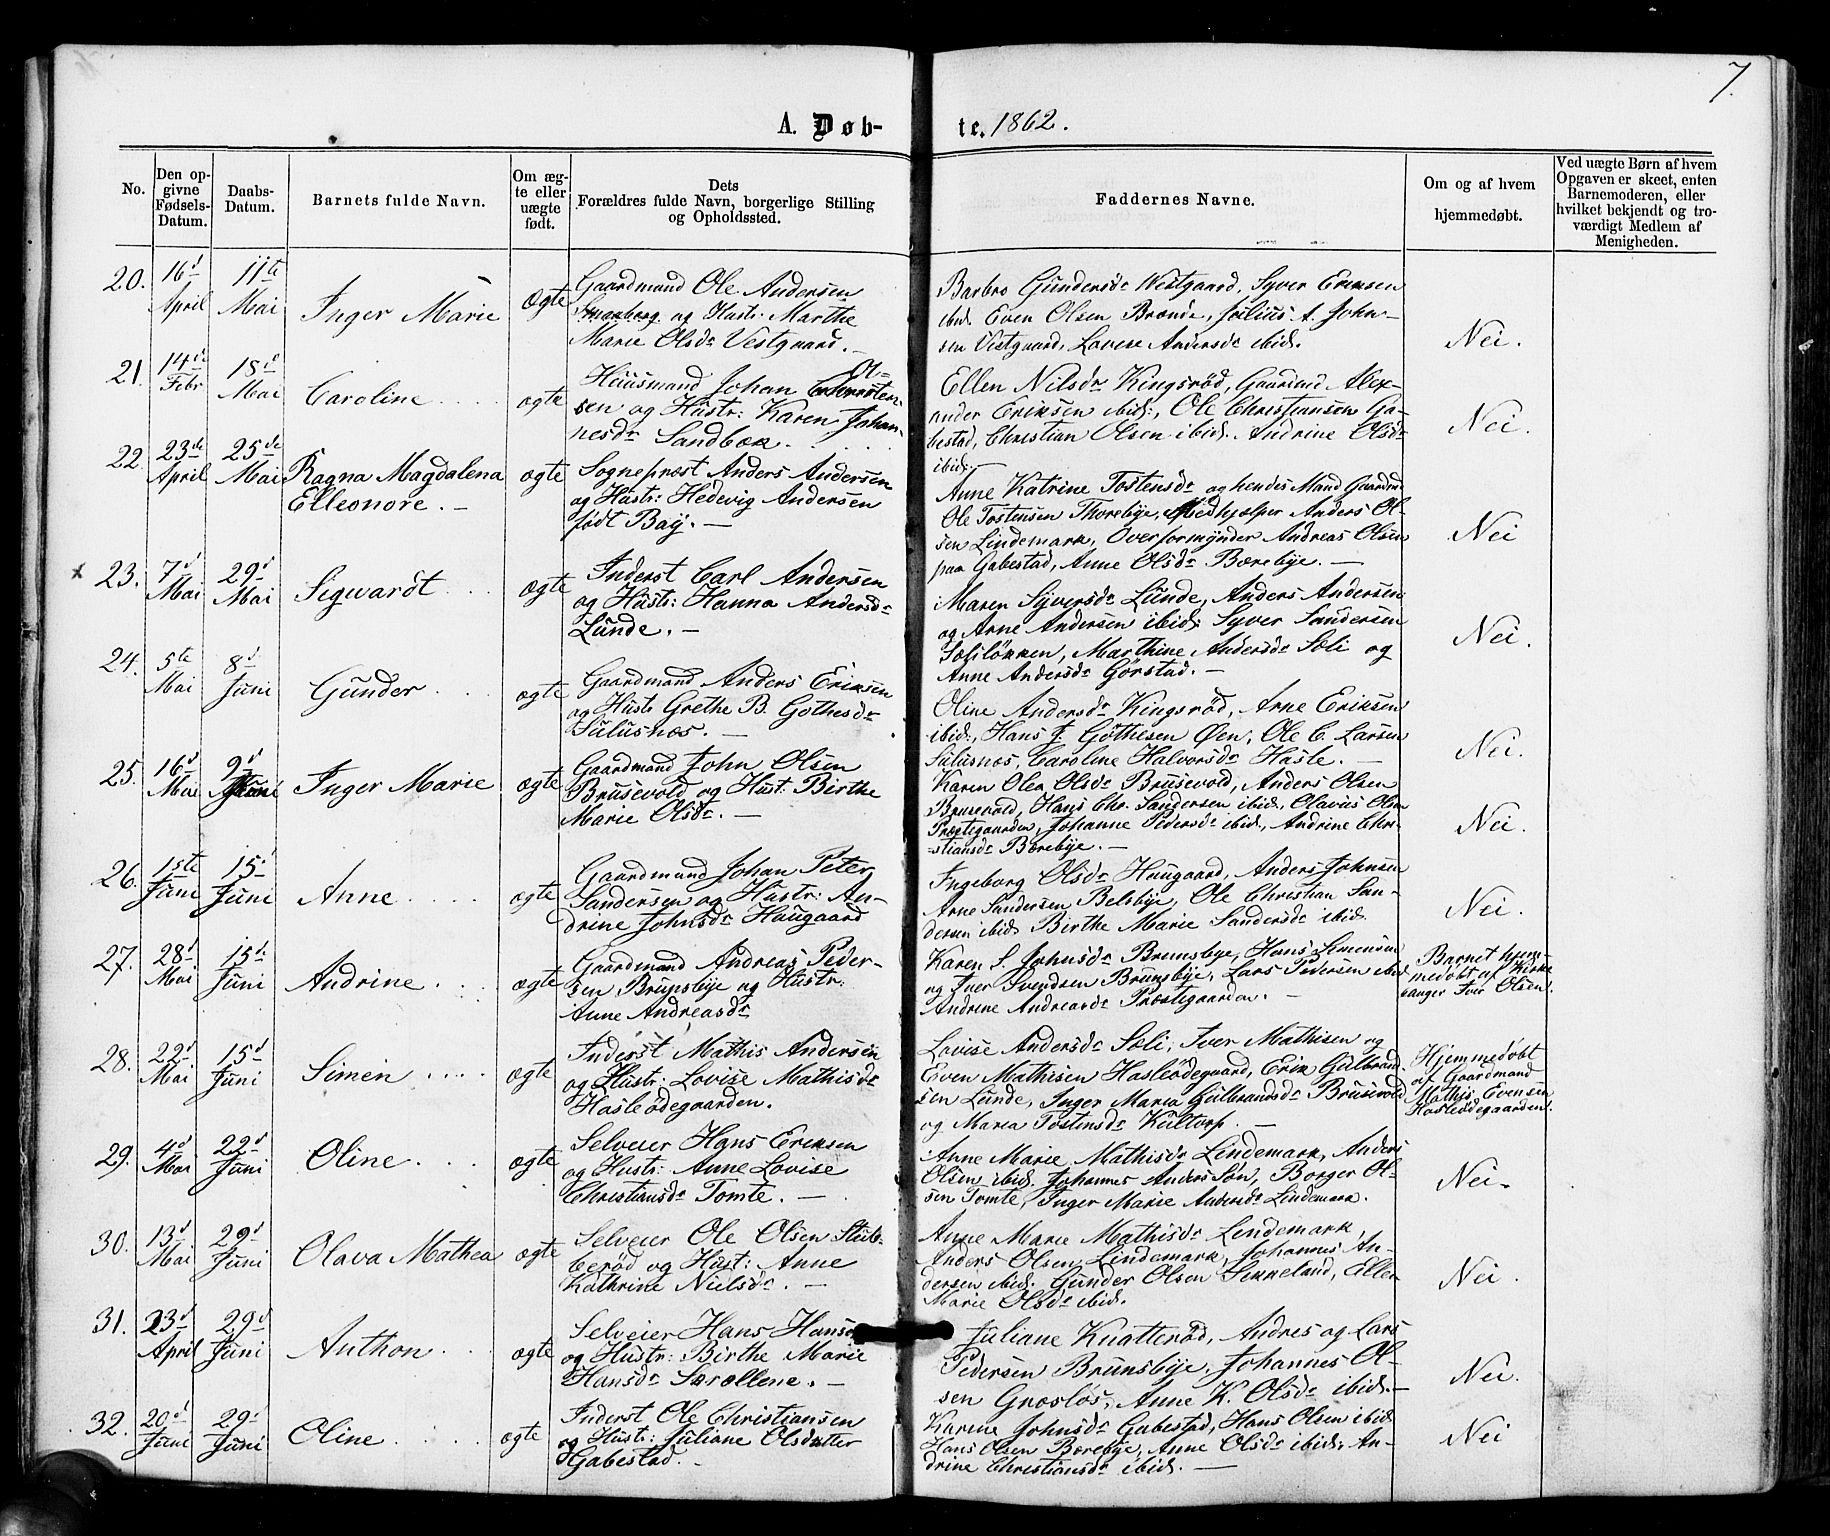 7.
A. Døb- te. 1862.
No.
Den op-
givne
Fødsels-
Datum.
Daabs-
Datum.
Barnets fulde Navn.
Om æg-
te eller
uægte
født.
Dets
Forældres fulde Navn, borgerlige Stilling
og Opholdssted.
Faddernes Navne.
Om og af hvem
hjemmedøbt.
Ved uægte Børn af hvem
Opgaven er skeet, enten
Barnemoderen, eller
hvilket bekjendt og tro-
værdigt Medlem af
Menigheden.
20.
16d
April
11te
Mai
Inger Marie
ægte
Gaardmand Ole Andersen
og Hustr: Marthe
Marie Olsdr Vestgaard. —
Barbro Gundersdr Westgaard, Syver Eriksen
ibid. Even Olsen Brønde, Julius A. John-
sen Vestgaard, Lovise Andersdr ibid.
Nei.
21.
14de
Febr
18d
Mai
Caroline
ægte
Huusmand Johan
sen og Hustr: Karen Johan-
nesdr Sandbæk.
Ellen Nilsdr Kingsrød, Gaardmd Alex-
ander Eriksen ibid., Ole Christiansen Ga-
bestad, Christian Olsen ibid. Andrine Olsdr
ibid. —
Nei.
22.
23de
April
25de
Mai
Ragna Magdalena
Elleonore. —
ægte
Sognepræst Anders Andersen
og Hustr: Hedevig Andersen
født Bay. —
Anne Katrine Tostensdr og hendes Mand Gaardmd
Ole Tostensen Thorebye, Medhjælper Anders Ol-
sen Lindemark, Overformynder Andreas Olsen
paa Gabestad, Anne Olsdr Bærebye. —
Nei
x 23.
7d
Mai
29d
Mai
Sigwardt
ægte
Inderst Carl Andersen
og Hustr: Hanna Andersdr
Lunde. —
Maren Syversdr Lunde, Anders Andersen
og Arne Andersen ibid. Syver Sandersen
Sæliløkken, Marthine Andersdr Sæli og
Anne Andersdr Gørstad. —
Nei.
24.
5te
Mai
8d
Juni
Gunder
ægte
Gaardmand Anders Eriksen
og Hustr Grethe B. Gøthesdr
Sulusnæs. —
Oline Andersdr Kingsrød, Arne Eriksen
ibid., Hans J. Gøthesen Øen, Ole C. Larsen
Sulusnæs, Caroline Halvorsdr Hasle. —
Nei.
25.
16d
Mai
9d
Juni
Inger Marie
ægte
Gaardmand John Olsen
Brusevold og Hust: Birthe
Marie Olsdr. —
Karen Olea Olsdr Brusevold, Anders Olsen
Brusevold, Hans Chr. Sandersen ibid, Olavus Olsen
Præstegaarden, Johanne Pedersdr ibid., Andrine Chri-
stiansdr Bærebye. —
Nei.
26.
1ste
Juni
15d
Juni
Anne
ægte
Gaardmand Johan Peter
Sandersen og Hustr: An-
drine Johnsdr Haugaard
Ingeborg Olsdr Haugaard, Anders Johnsen
Arne Sandersen Belsbye, Ole Christian San-
dersen ibid. Birthe Marie Sandersdr ibid.
Nei.
27.
28d
Mai
15d
Juni
Andrine
ægte
Gaardmand Andreas Peder-
sen Brunsbye og Hustr:
Anne Andreasdr
Karen S. Johnsdr Brunsbye, Hans Simensen
og Iver Svendsen Brunsbye, Lars Pedersen ibid
Andrine Andreasdr Præstegaarden. —
Barnet hjem-
medøbt af Kirke-
sanger Iver Olsen.
28.
22d
Mai
15d
Juni
Simen
ægte
Inderst Mathis Andersen
og Hustr: Lovise Mathisdr
Hasleødegaarden.
Lovise Andersdr Sæli, Iver Mathisen og
Even Mathisen Hasleødegaard, Erik Gulbrand-
sen Lunde, Inger Maria Gulbrandsdr Brusevold
og Maria Tostensdr Kultorp. —
Hjemmedøbt
af Gaardmand
Mathis Evensen
Hasleødegaarden.
29.
4d
Mai
22d
Juni
Oline
ægte
Selveier Hans Eriksen
og Hustr: Anne Lovise
Christiansdr Tomte. —
Anne Marie Mathisdr Lindemark, Anders
Olsen ibid. Johannes Anders Søn, Borger Ol-
sen Tomte, Inger Marie Andersdr Lindemark.
Nei.
30.
13d
Mai
29d
Juni
Olava Mathea
ægte
Selveier Ole Olsen Stub-
berød og Hust: Anne
Kathrine Nielsdr. —
Anne Marie Mathisdr Lindemark,
Anders Olsen Lindemark, Johannes An-
dersen ibid. Gunder Olsen Sekkelund, Ellen
Marie Olsdr ibid.
Nei.
31.
23d
April
29d
Juni
Anthon
ægte
Selveier Hans Hansen
og Hustr: Birthe Marie
Hansdr Sæaellene. —
Juliane Knatterød, Andres og Lars
Pedersen Brunsbye, Johannes Ol-
sen Græsløs, Anne K. Olsdr ibid. —
Nei.
32.
20d
Juni
29d
Juni
Oline
ægte
Inderst Ole Christiansen
og Hustr: Juliane Olsdatter
Gabestad. —
Karine Johnsdr Gabestad, Hans Olsen ibid
Hans Olsen Bærebye, Anne Olsdr ibid. An-
drine Christiansdr ibid. —
Nei